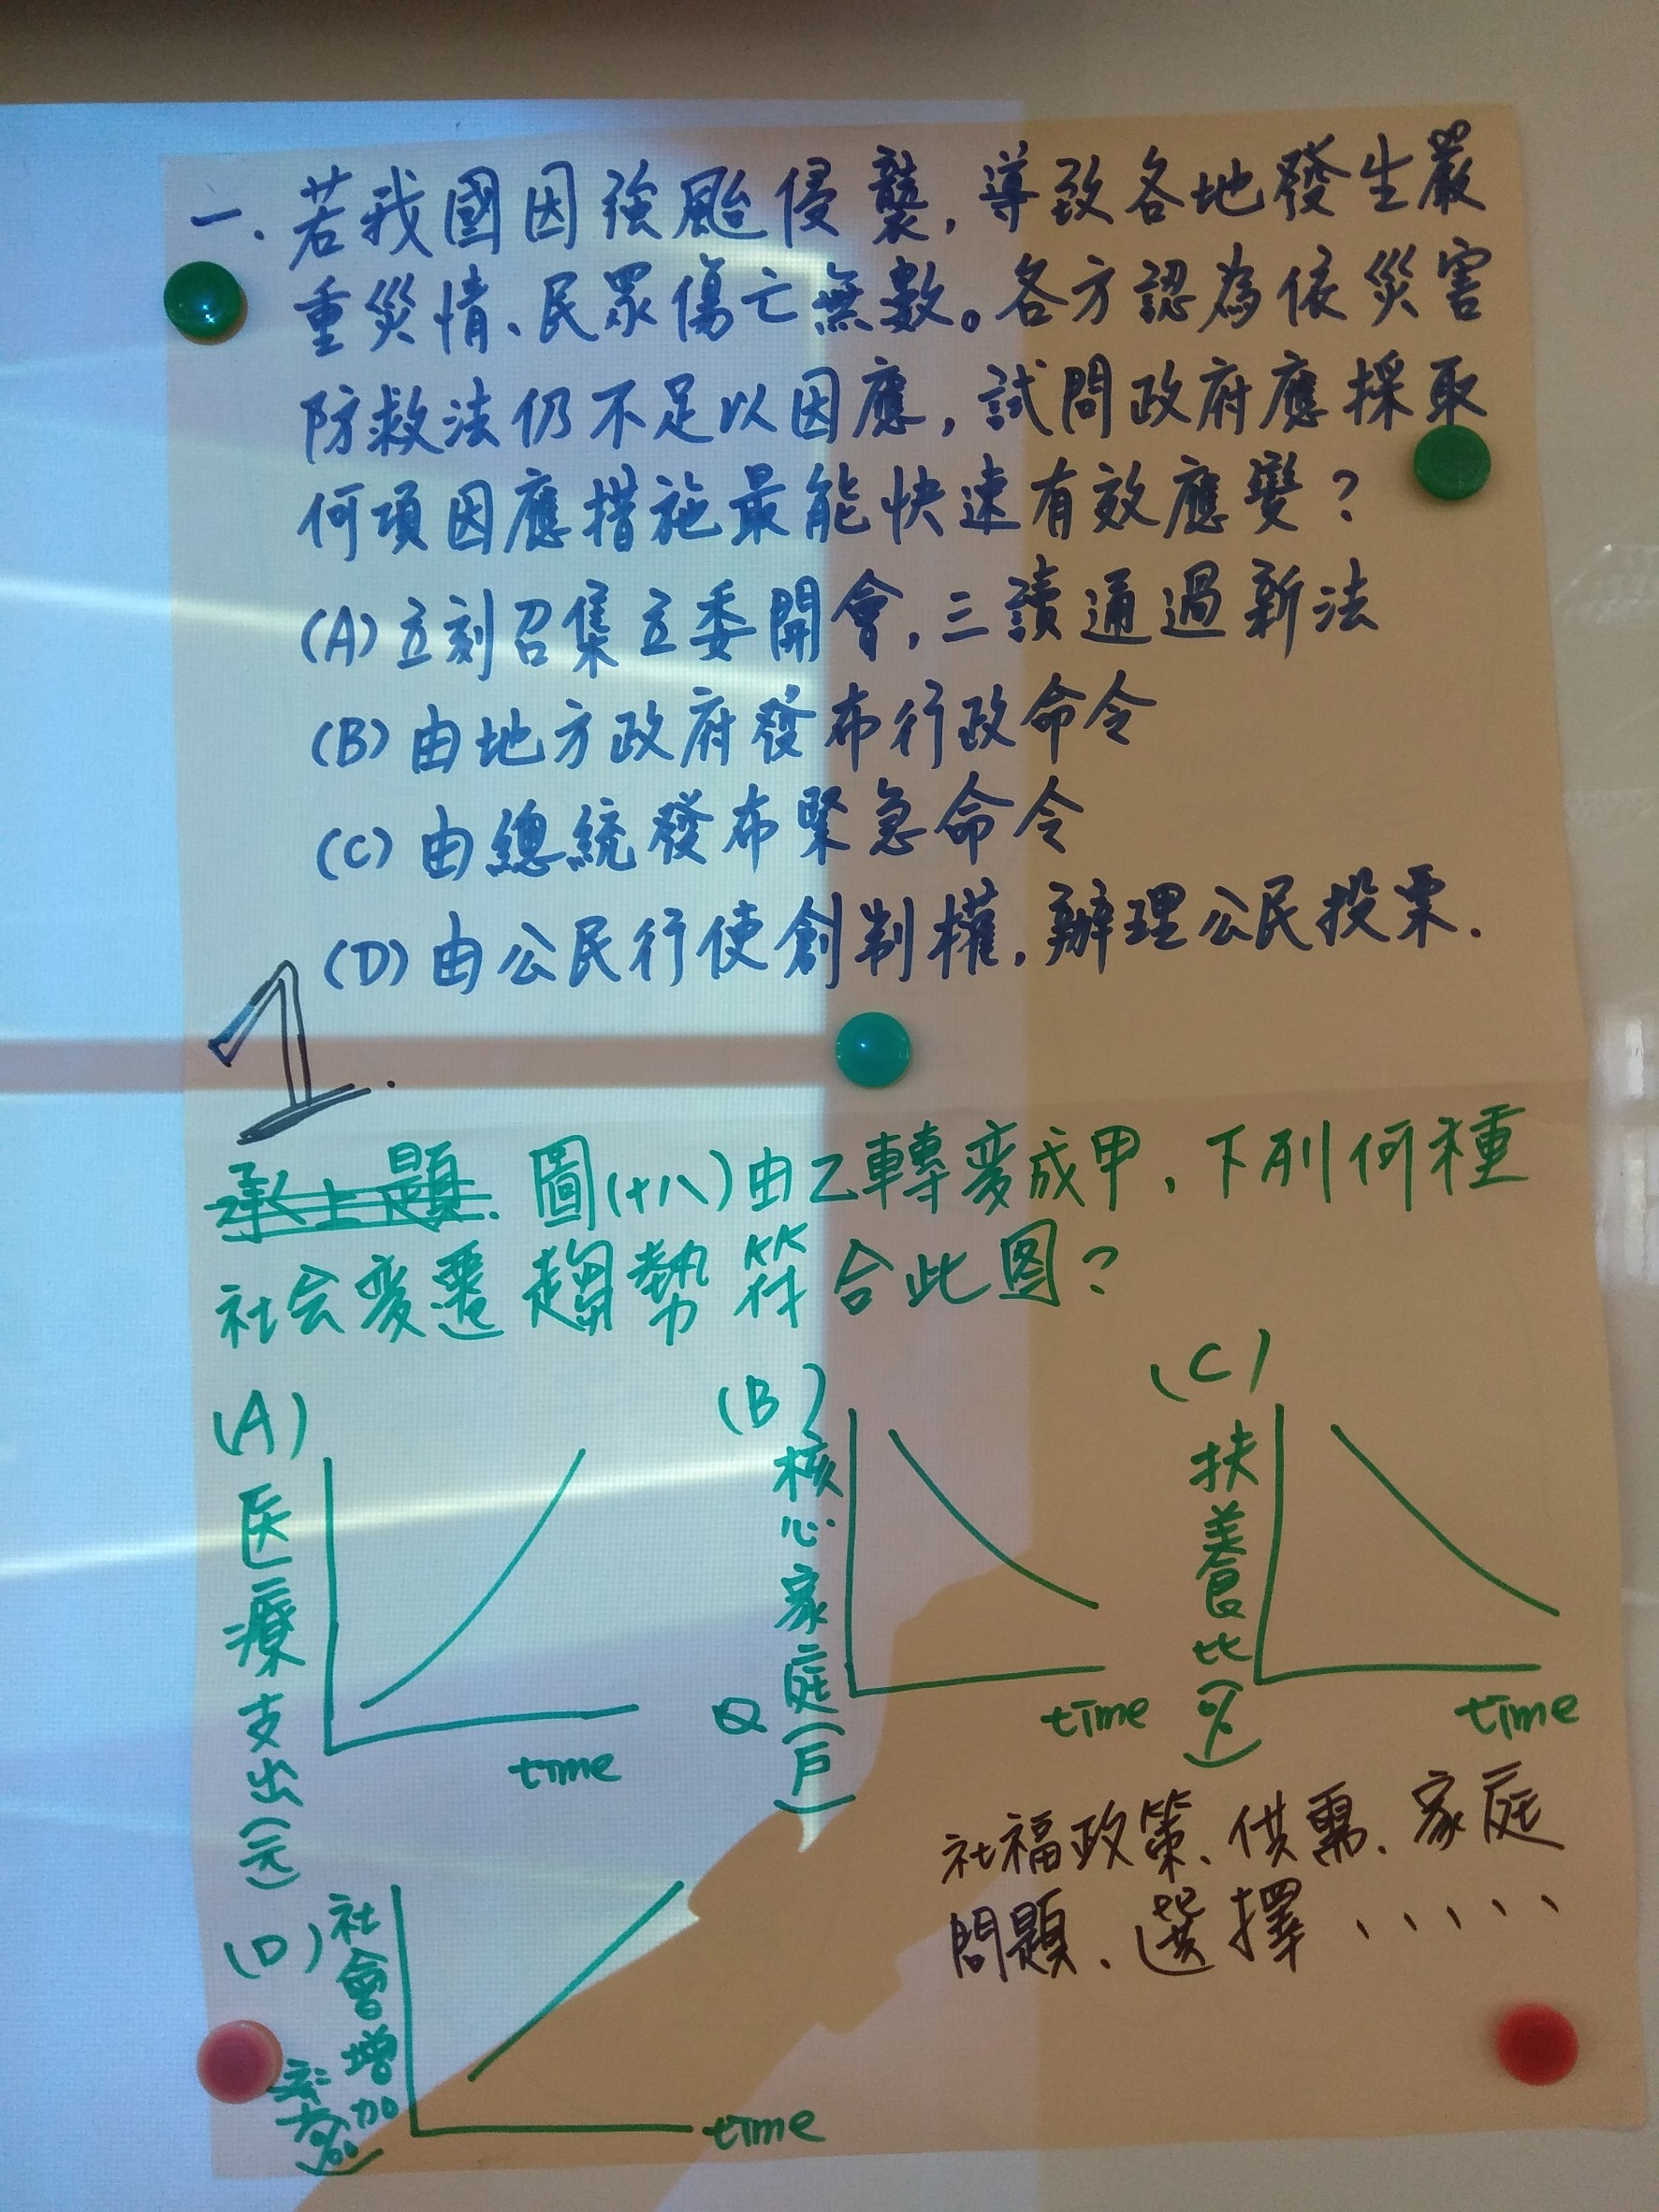 一. 若我國因強颱侵襲, 導致各地發生嚴
重災情、民眾傷亡無數。各方認為依災害
防救法仍不足以因應, 試問政府應採取
何項因應措施最能快速有效應變?
(A) 立刻召集立委開會, 三讀通過新法
(B) 由地方政府發布行政命令
(C) 由總統發布緊急命令
(D) 由公民行使創制權, 辦理公民投票.
1.
承上題. 圖(十八)由乙轉变成甲, 下列何種
社会变遷趨勢符合此图?
(A)
医療支出(元)
time
(B)
核心家庭(戶)
time
(C)
扶養比(%)
time
(D)
社會增加
率(%)
time
社福政策、供需、家庭
問題、選擇、、、、、